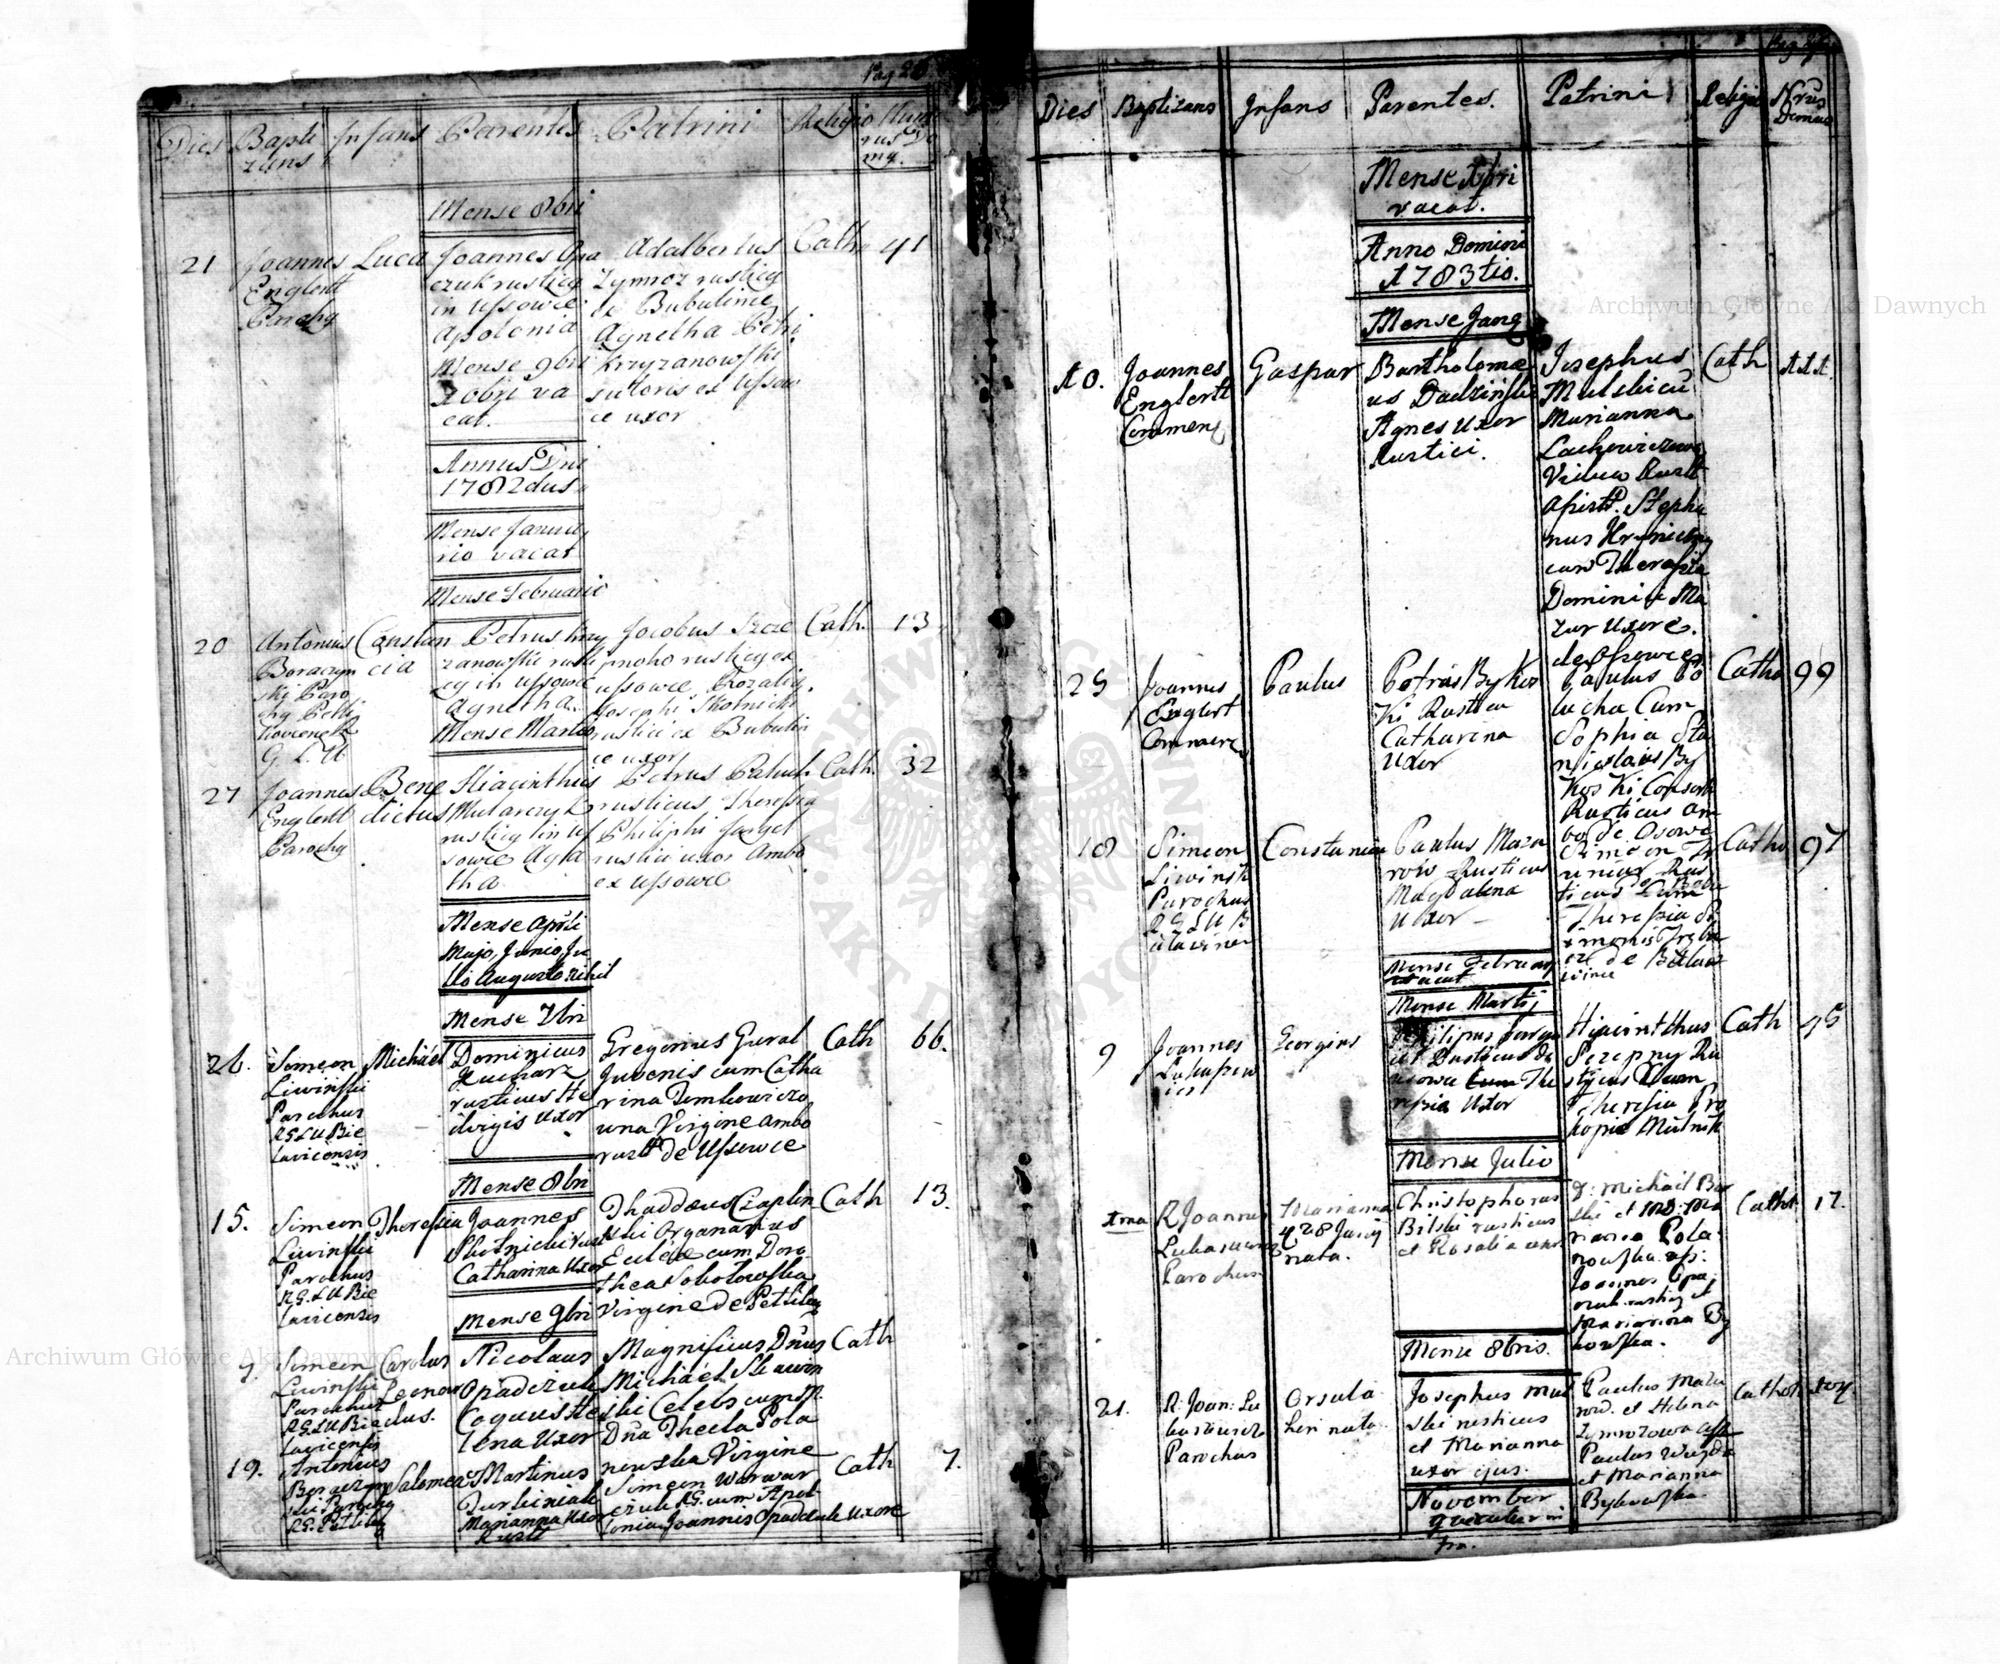 Pag 26
Dies
Bapti
zans
Infans
Parentes
Patrini
Religio
Nume
rus Do
mq.
Mense 8bri
21
Joannes
Englertt
Parochq
Luca
Joannes Opa
czuk rusticq
in Ussowce
Apolonia
Adalbertus
Zymroz rusticq
de Bubulince
Agnetha Petri
Krzyzanowski
sutoris ex Ussow
ce uxor
Cath
41
Mense 9bri
Xobri va
cat.
Annus Dni
1782dus
Mense Janua
rio vacat
Mense Februario
20
Antonius
Boraczyn
ski Paro
chq Petli
kovcensis
G. L. U
Constan
cia
Petrus Krzy
zanowski rusti
cq in Ussowce
Agnetha.
Jacobus Szcze
rusticq ex
Ussowce, Rozalia
Josephi Skotnicki
rustici ex Bubulin
ce uxor
Cath.
13
Mense Martio
27
Joannes
Englertt
Parochq
Bene
dictus
Hiacinthus
Mularczyk
rusticq in Us
sowce Aga
tha
Petrus Paluch
rusticus, Theressia
Philiphi Jargel
rustici uxor Ambo
ex Ussowce
Cath.
32
Mense Aprili
Majo, Junio, Ju
lio Augusto nihil
Mense 7bri
26.
Simeon
Liwinski
Parochus
RGLU Bie
lavicensis
Michael
Dominicus
Kucharz
rusticus He
dvigis Uxor
Gregorius Gural
Juvenis cum Catha
rina Dembowiczo
wna Virgine ambo
rustt de Ussowce
Cath
66.
Mense 8bri
15.
Simeon
Liwinski
Parochus
RGLU Bie
lavicensis
Theressia
Joannes
Skotnicki rust
Catharina Uxor
Thaddæus Czaplin
ski Organarius
Eccl cum Doro
thea Sobolowska
Virgine de Petlikq
Cath
13.
Mense 9bri
7.
Simeon
Liwinski
Parochus
RGLU Bie
lavicensis
Carolus
Leonar
dus.
Nicolaus
Opadczuk
Coquus He
lena Uxor
Magnificus Dnus
Michael Slawin
ski Celebs cum M.
Dna Thecla Pola
nowska Virgine
Cath
19.
Antonius
Boraczyn
ski Parochq
RG. Petlikq
Salomea
Martinus
Marianna Uxor
Rustt
Simeon Warwar
czuk RG. cum Apol
lonia Joannis Opadczuk uxore
Cath
7.
Dies
Baptizans
Infans
Parentes.
Patrini
Religio
Nrus
Domus
Mense Xbri
vacat.
Anno Domini
1783tio.
Mense Janq
10.
Joannes
Englertt
Commenq
Gaspar
Bartholomæ
us Dadzinski
Agnes Uxor
Rustici.
Josephus
Mulski cu
Marianna
Lachowiczowa
Vidua Rustt
Assistt. Stepha
nus Hrynickiy
cum Theressia
Dominici Ma
zur Uxore.
de Ussowce
Cath
111.
25
Joannes
Englert
Commen
Paulus
Petrus Bykos
Ki Rusticus
Catharina
Uxor
Paulus Po
lucha Cum
Sophia Sta
nislaus By
Kos Ki Consort
Rusticus am
bo de Osowce
Catho
99
18
Simeon
Liwinski
Parochus
R G L U B
ilavicen
Constancia
Paulus Mazu
row Rusticus
Magdalena
Uxor
Simeon
Rus
ticus Cum
Theressia
de Bielaw
ince
Catho
97
Mense Februarq
vacat
Mense Martij
9
Joannes
Lukasiew
icz
Georgius
Philipus Jarge
Rusticus De
Usowce The
ressia Uxor
Hiacinthus
Perepny Ru
sticus Cum
Theressia Pro
kopie Mielnik
Cath
45
Mense Julio
1ma
R Joannes
Lukasiewicz
Parochus
Marianna
28 Junij
nata.
Christophorus
Bilski rusticus
et Rosalia uxor
D: Michael Bor
ski et MD: Ma
rianna Pola
nowska ass:
Joannes Opa
czuk rusticq et
Marianna By
kowska.
Cathol
17.
Mense 8bris.
21.
R. Joan: Lu
kasiewicz
Parochus
Orsula
heri nata.
Josephus Mul
ski rusticus
et Marianna
uxor ejus.
Paulus Mazu
row. et Helena
Zymrozowa Ass
Paulus Wuyda
et Marianna
Bykowska.
Cathol
November
quæratur in
fra.
Archiwum Główne Akt Dawnych
Archiwum Główne Akt Dawnych
ARCHIWUM GŁÓWNE AKT DAWNYCH